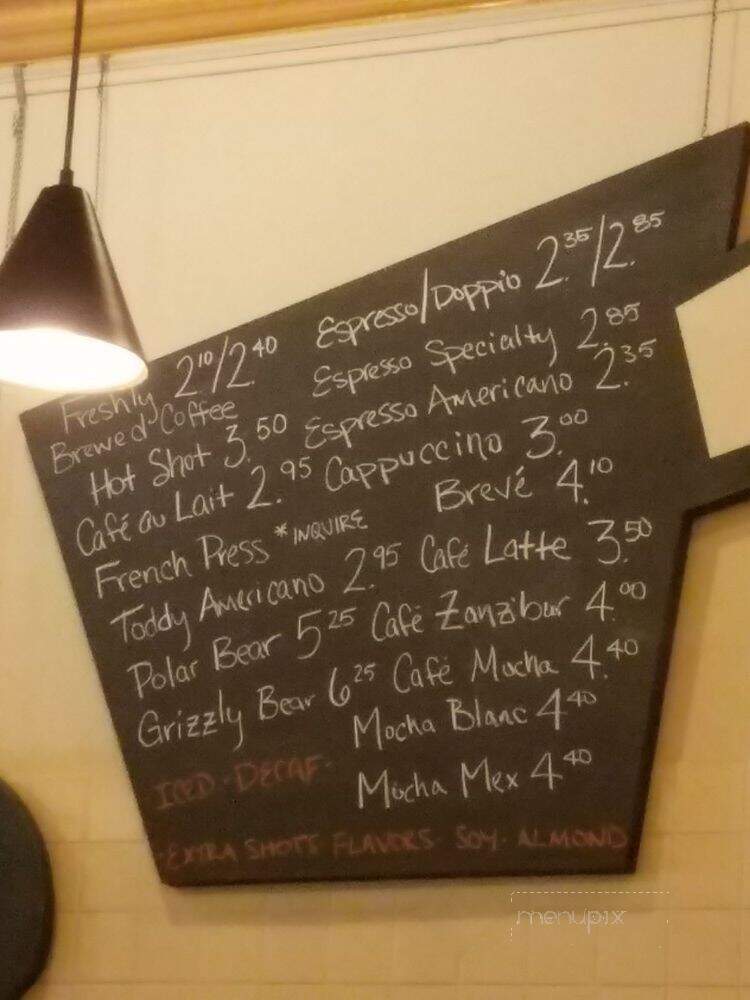 Freshly 2.10/2.40
Brewed Coffee
Hot Shot 3.50
Café au Lait 2.95
French Press *INQUIRE
Toddy Americano 2.95
Polar Bear 5.25
Grizzly Bear 6.25
ICED · DECAF ·
Espresso/Doppio 2.35/2.85
Espresso Specialty 2.85
Espresso Americano 2.35
Cappuccino 3.00
Brevé 4.10
Café Latte 3.50
Café Zanzibar 4.00
Café Mocha 4.40
Mocha Blanc 4.40
Mocha Mex 4.40
· EXTRA SHOTS FLAVORS · SOY · ALMOND
menupix